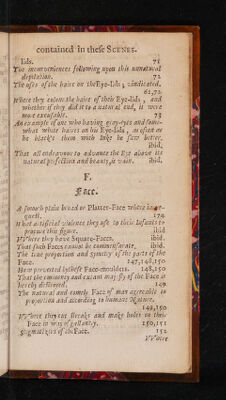 contained in these SCENES.
lids. 71
The inconveniences following upon this unnatural
depilation. 72
The uses of the haire on the Eye-lids, vindicated.
61,72
Where they colour the haire of their Eye-lids, and
whether if they did it to a natural end, it were
more excusable. 73
An example of one who having gray-eyes and some-
what white haires on his Eye-lids, as often as
he blacks them with Inke he saw better,
ibid.
That all endeavour to advance the Eye above its
natural perfection and beauty, is vain. ibid.
F.
Face.
A smooth plain broad or Platter-Face where in
quest. 174
What artificial violence they use to their Infants to
procure this figure. ibid
Where they have Square-Faces. ibid.
That such Faces cannot be commensurate. ibid.
The true proportion and symetry of the parts of the
Face. 147,148,150
How perverted by these Face-moulders. 148,150
That the community and custom of the Face is
hereby destroyed. 149
The natural and comely Face of man agreeable in
proportion and according to humane Nature.
149,150
Where they cut streaks and make holes in their
Face in way of gallantry. 150,151
Stigmatizers of the Face. 152
Where